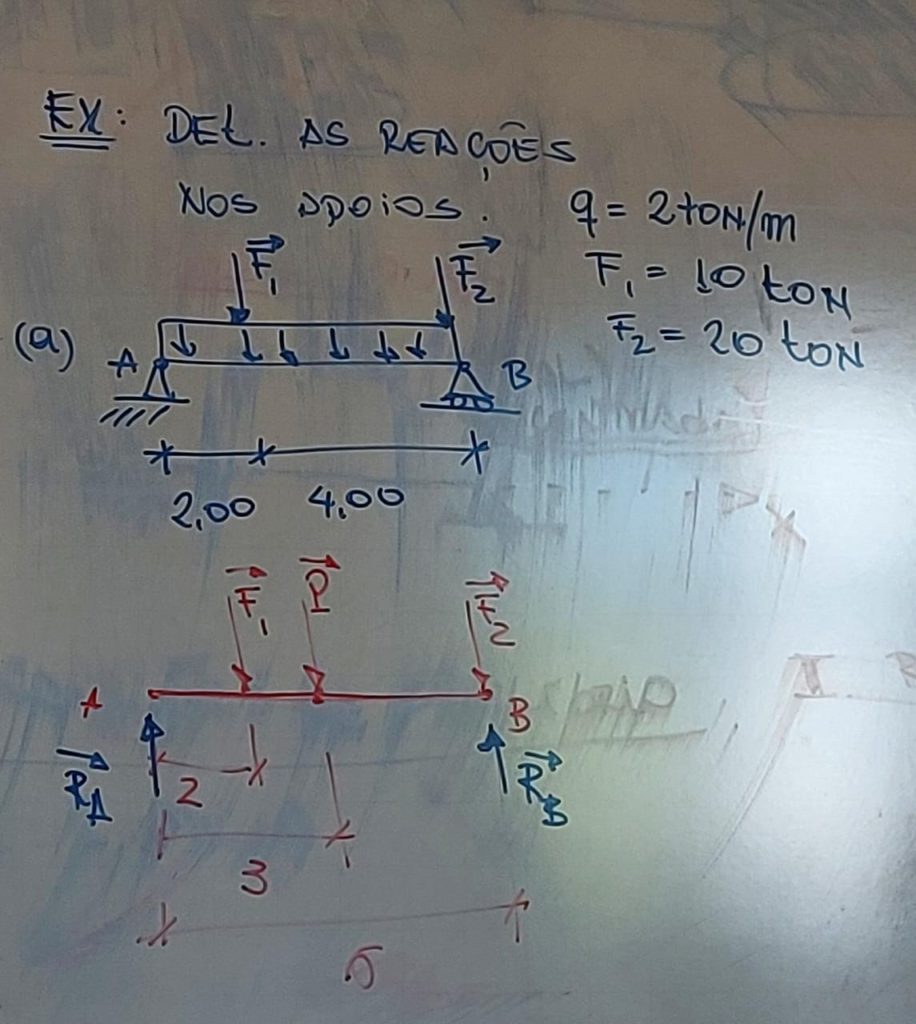 EX: DET. AS REAÇÕES
NOS APOIOS.
q = 2 ton/m
F₁ = 10 ton
F₂ = 20 ton
F₁ F₂
(a) A B
2,00 4,00
F₁ P F₂
A B
R_A 2 R_B
3
6